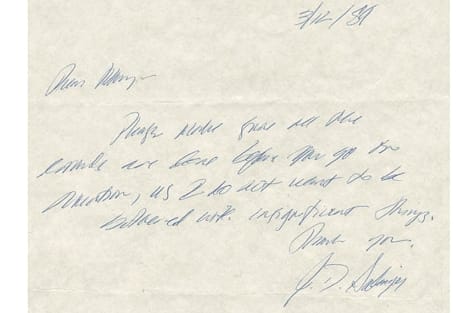 3/12/89
Dear Mary
Please make sure all the
errands are done before you go on
vacation, as I do not want to be
bothered with insignificant things.
Thank you.
J. D. Salinger